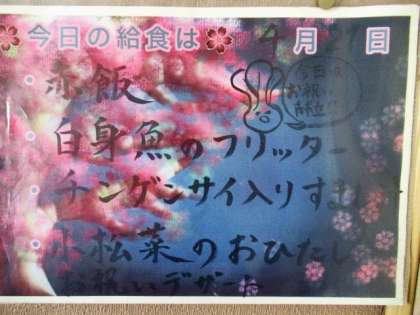 今日の給食は 4月 日
・赤飯
お祝
献立
・白身魚のフリッター
・チンゲンサイ入りすまし
・小松菜のおひたし
・お祝いデザート